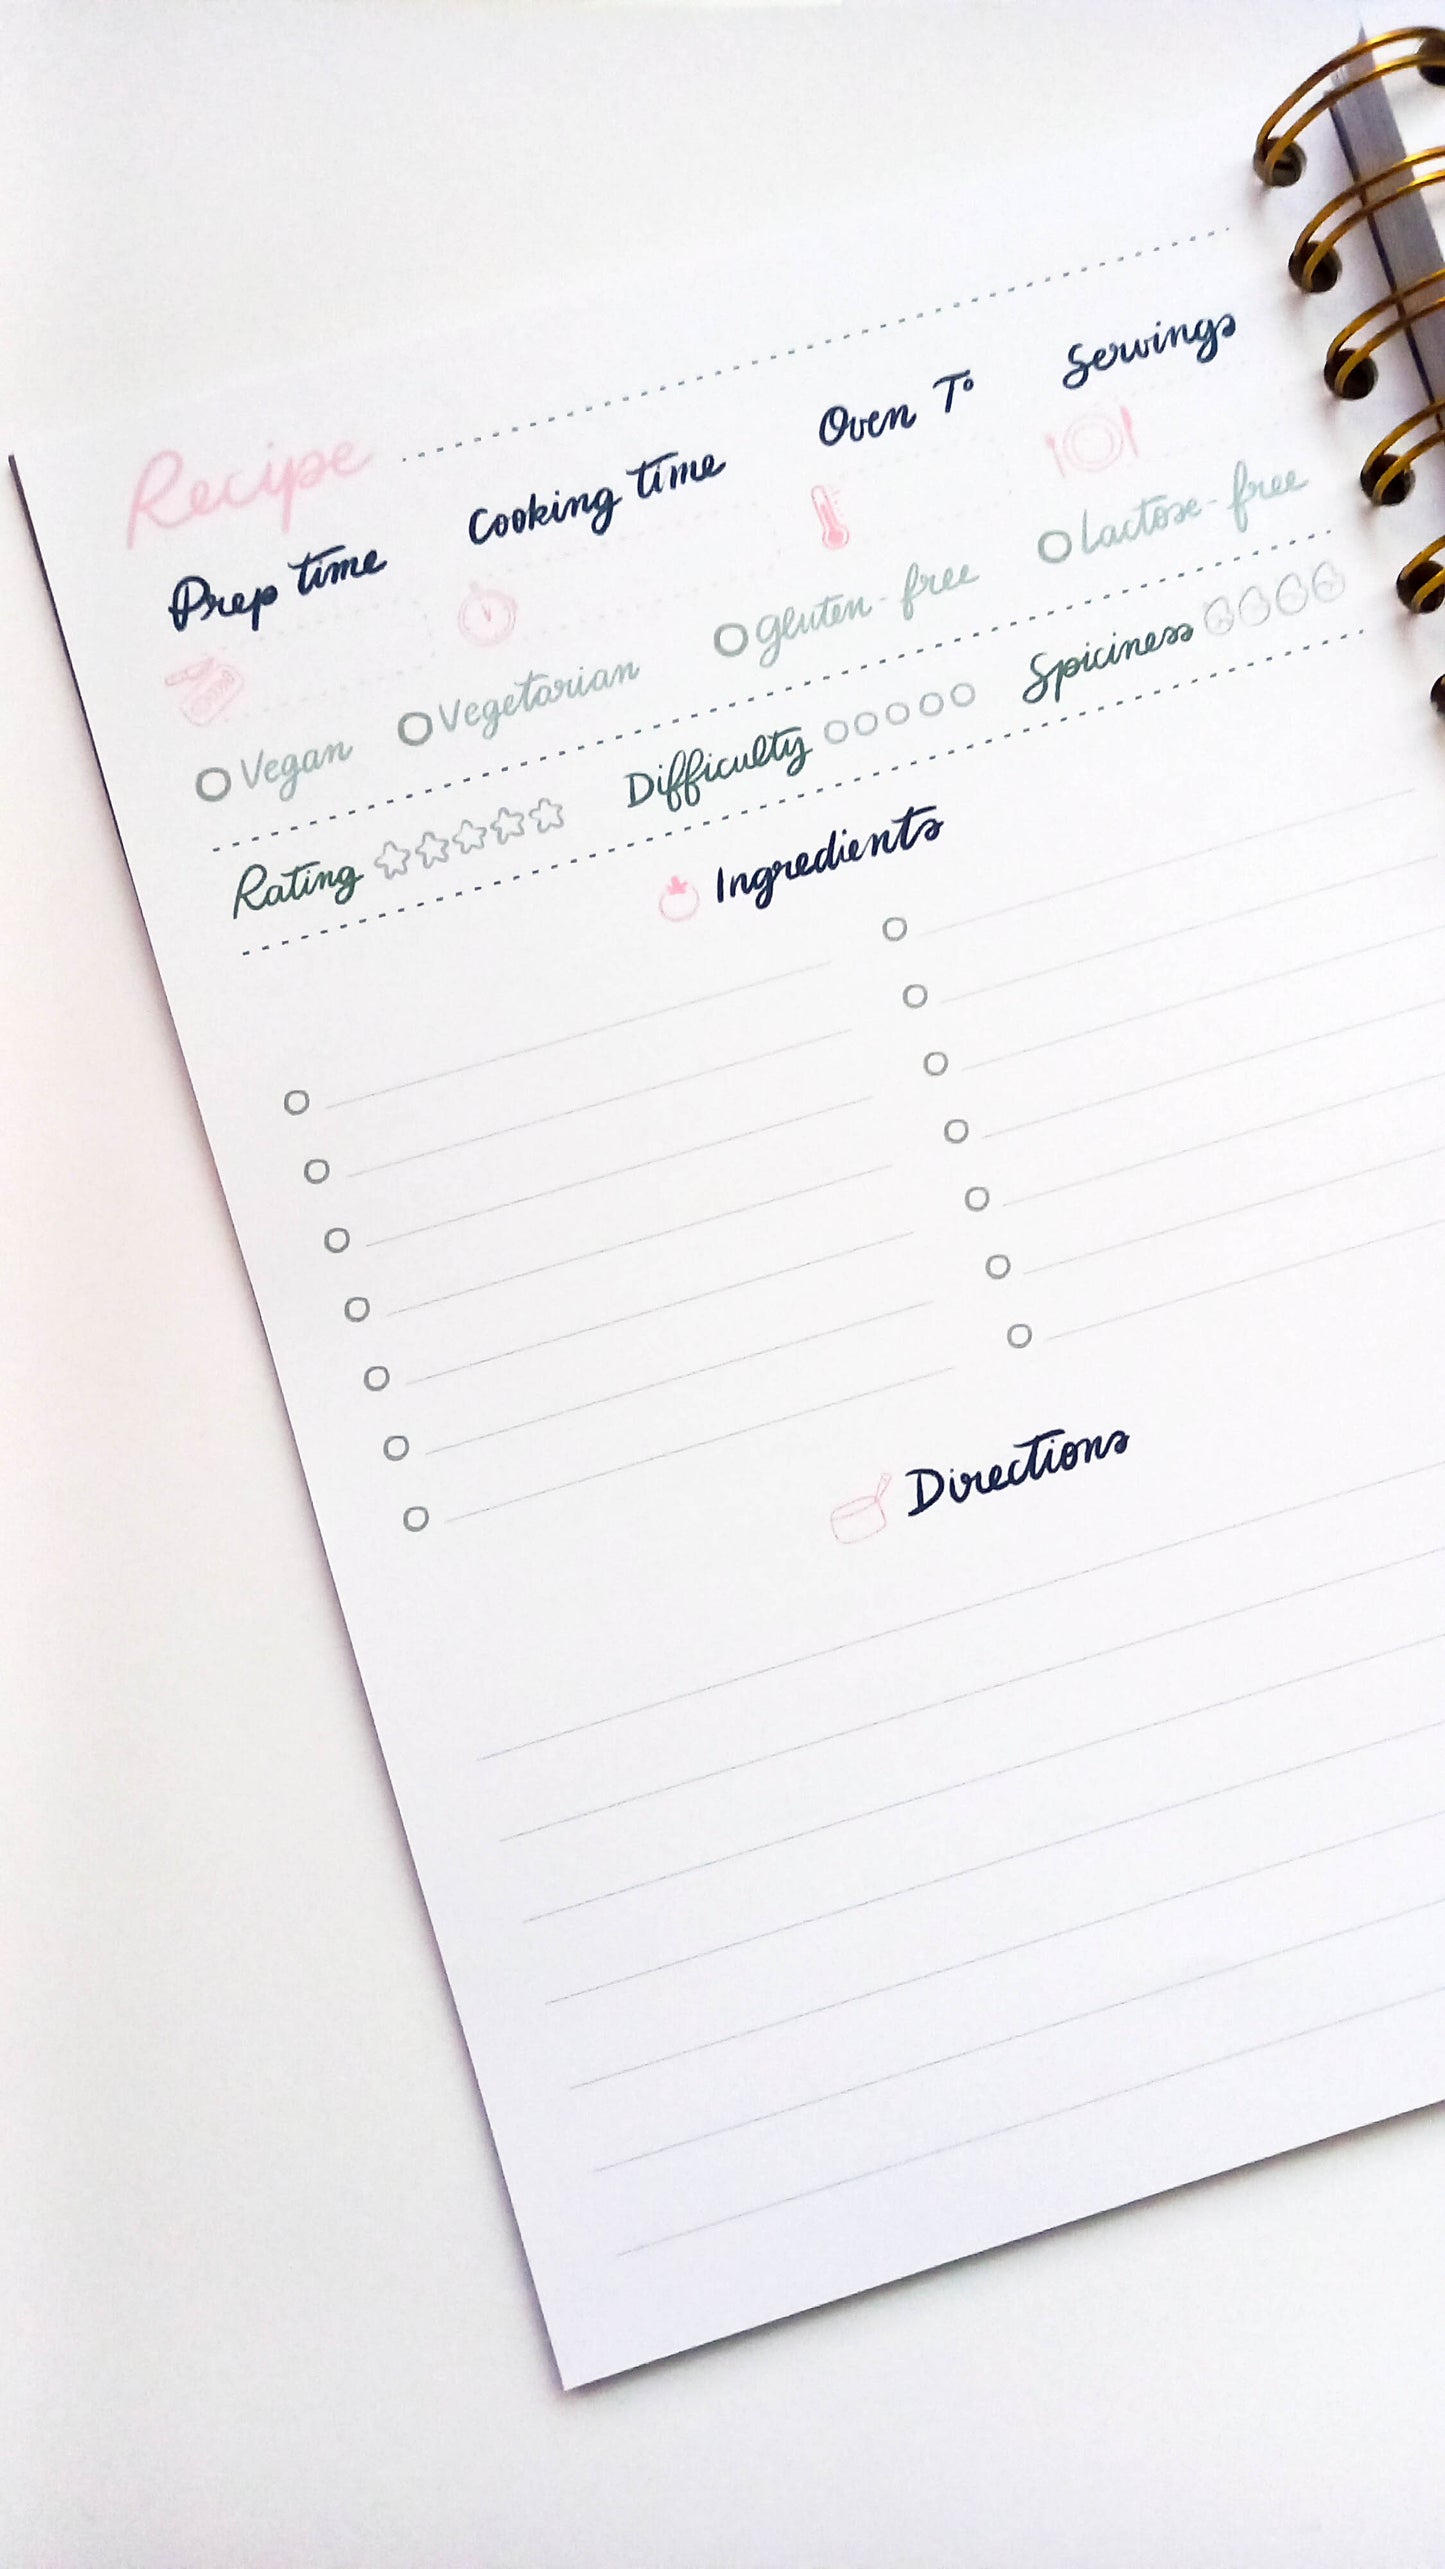 Recipe
Prep time Cooking time Oven T° Servings
Vegan Vegetarian gluten-free Lactose-free
Rating Difficulty Spiciness
Ingredients
Directions